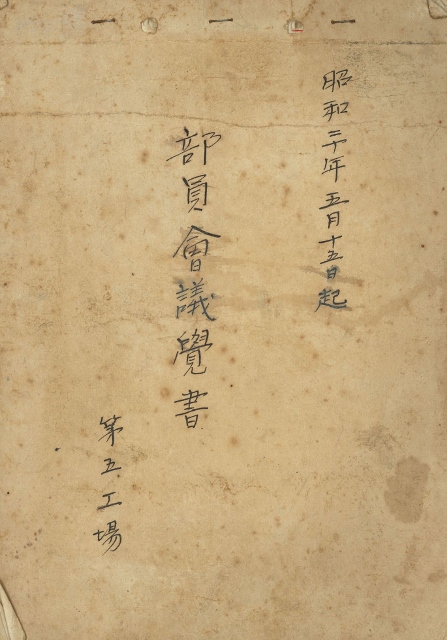 昭和二十年五月十五日起
部員會議覺書
第五工場